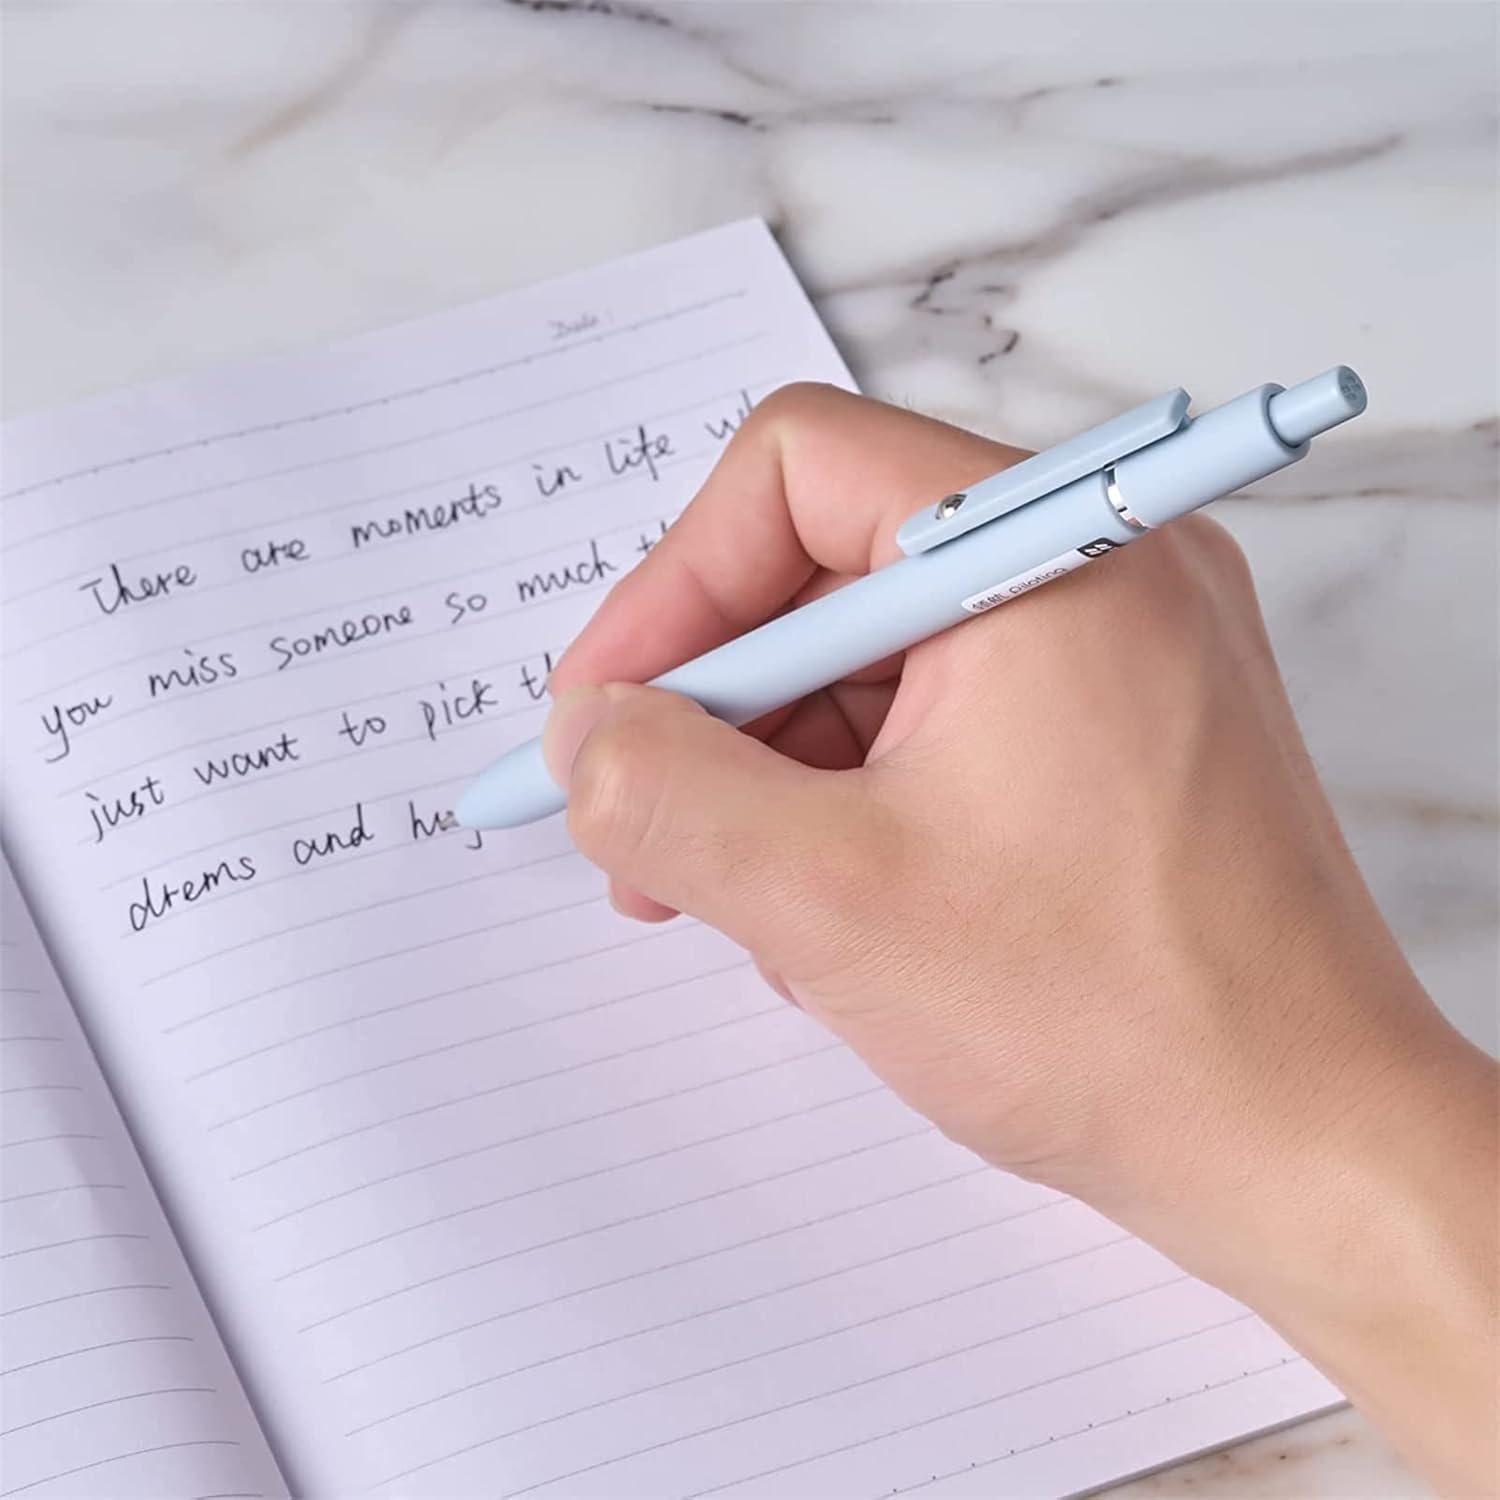 Date:
There are moments in life wh
you miss someone so much th
just want to pick th
drems and hug
领航 piloting